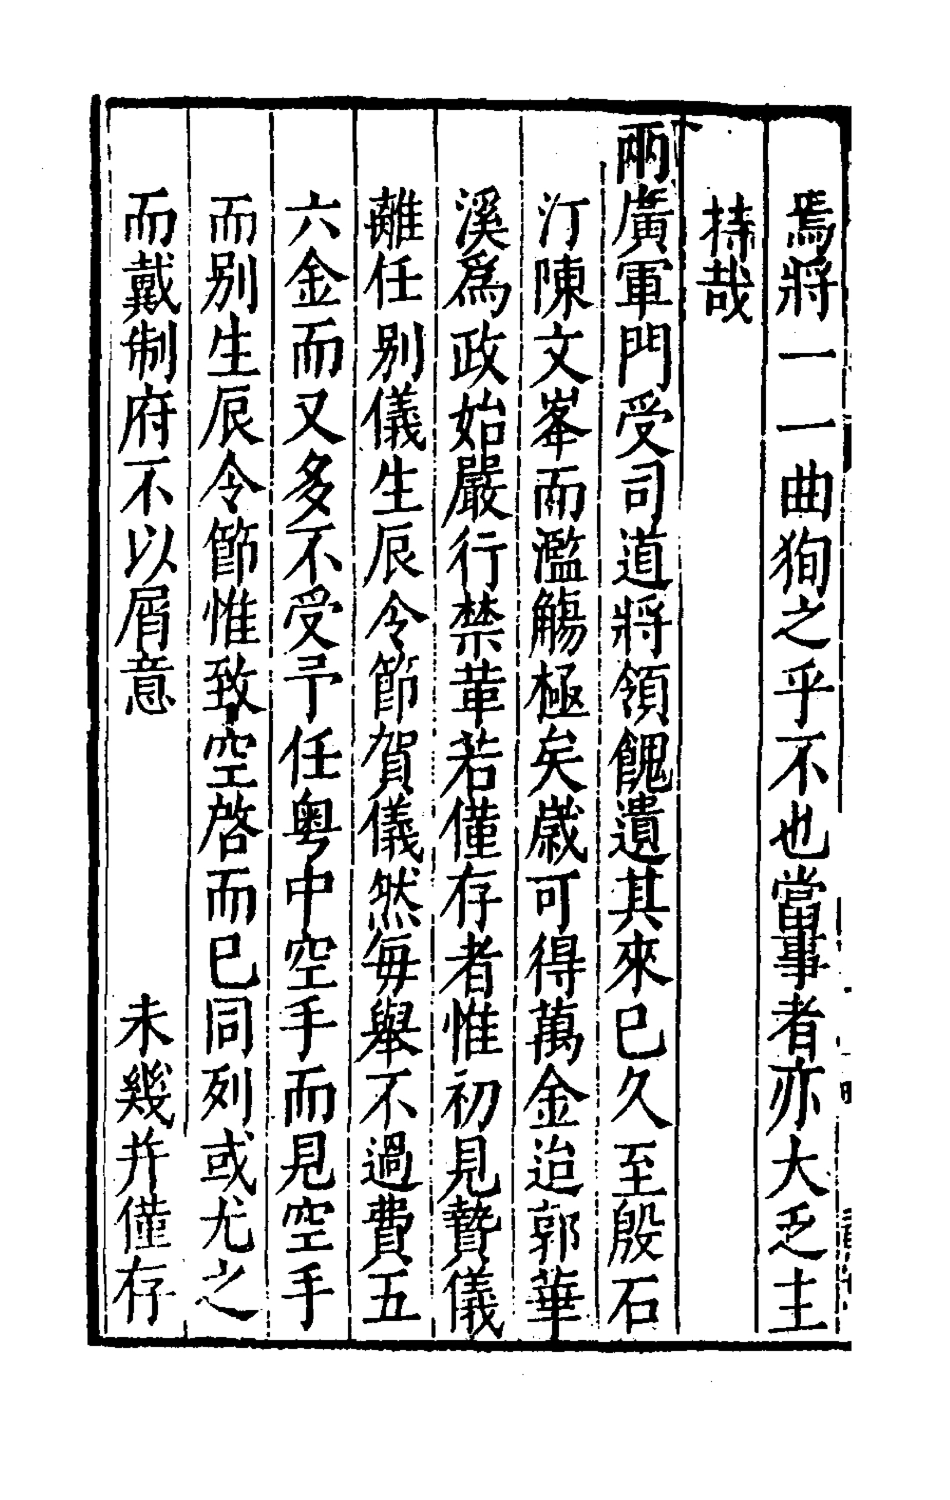 焉將一一曲狥之乎不也當事者亦大乏主
持哉
兩廣軍門受司道將領餽遺其來已久至殷石
汀陳文峯而濫觴極矣歲可得萬金迨郭華
溪爲政始嚴行禁革若僅存者惟初見贄儀
離任別儀生辰令節賀儀然每舉不過費五
六金而又多不受予任粤中空手而見空手
而別生辰令節惟致空啓而已同列或尤之
而戴制府不以屑意 未幾并僅存